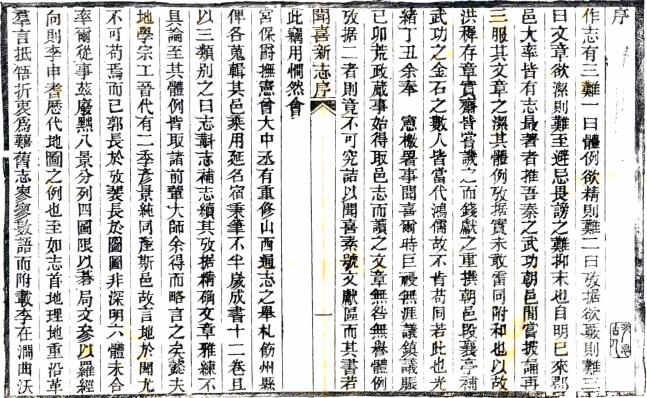 序
作志有三難一曰體例欲精則難二曰攷据欲覈則難三
曰文章欲潔則難至避忌畏謗之難抑末也自明已來郡
邑大率皆有志最著者推吾秦之武功朝邑間嘗披論再
三服其文章之潔其體例攷据實未敢雷同附和也以故
洪穉存章實齋皆嘗譏之而錢獻之重撰朝邑段襄亭補
武功之金石之數人皆當代鴻儒故不肯苟同若此也光
緒丁丑余奉　憲檄署事聞喜爾時巨祲無涯議鎮議賑
己卯荒政蕆事始得取邑志而讀之文章無咎無譽體例
攷据二者則竟不可究詰以聞喜素號文獻區而其書若
聞喜新志序　一
此竊用憫然會
宮保爵撫憲曾大中丞有重修山西通志之舉札飭州縣
俾各蒐輯其邑乘用延名宿秉筆不半歲成書十二卷且
以三類別之曰志斠志補志續其攷据精确文章雅練不
具論至其體例皆取諸前輩大師余得而略言之矣懿夫
地學宗工晉代有二季彥景純同產斯邑故言地於聞尤
不可苟焉而已郭長於攷裴長於圖圖非深明六體未合
率爾從事茲廢黜八景分列四圖限以碁局文參以羅經
向則李申耆歷代地圖之例也至如志首地理地重沿革
羣言抵牾折衷為難舊志寥寥數語而附載李在澗曲沃